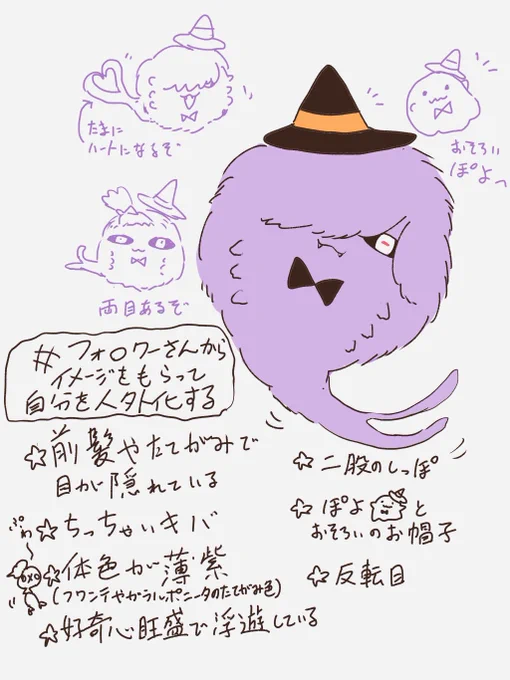 たまに
ハートになるぞ
おそろい
ぽよっ
両目あるぞ
#フォ〇ワーさんから
イメージをもらって
自分を人外化する
☆前髪やたてがみで
目が隠れている
☆ちっちゃいキバ
ぷわ〜
☆体色が薄紫
(フワンテやガラルポニータのたてがみ色)
☆好奇心旺盛で浮遊している
☆二股のしっぽ
☆ぽよと
おそろいのお帽子
☆反転目